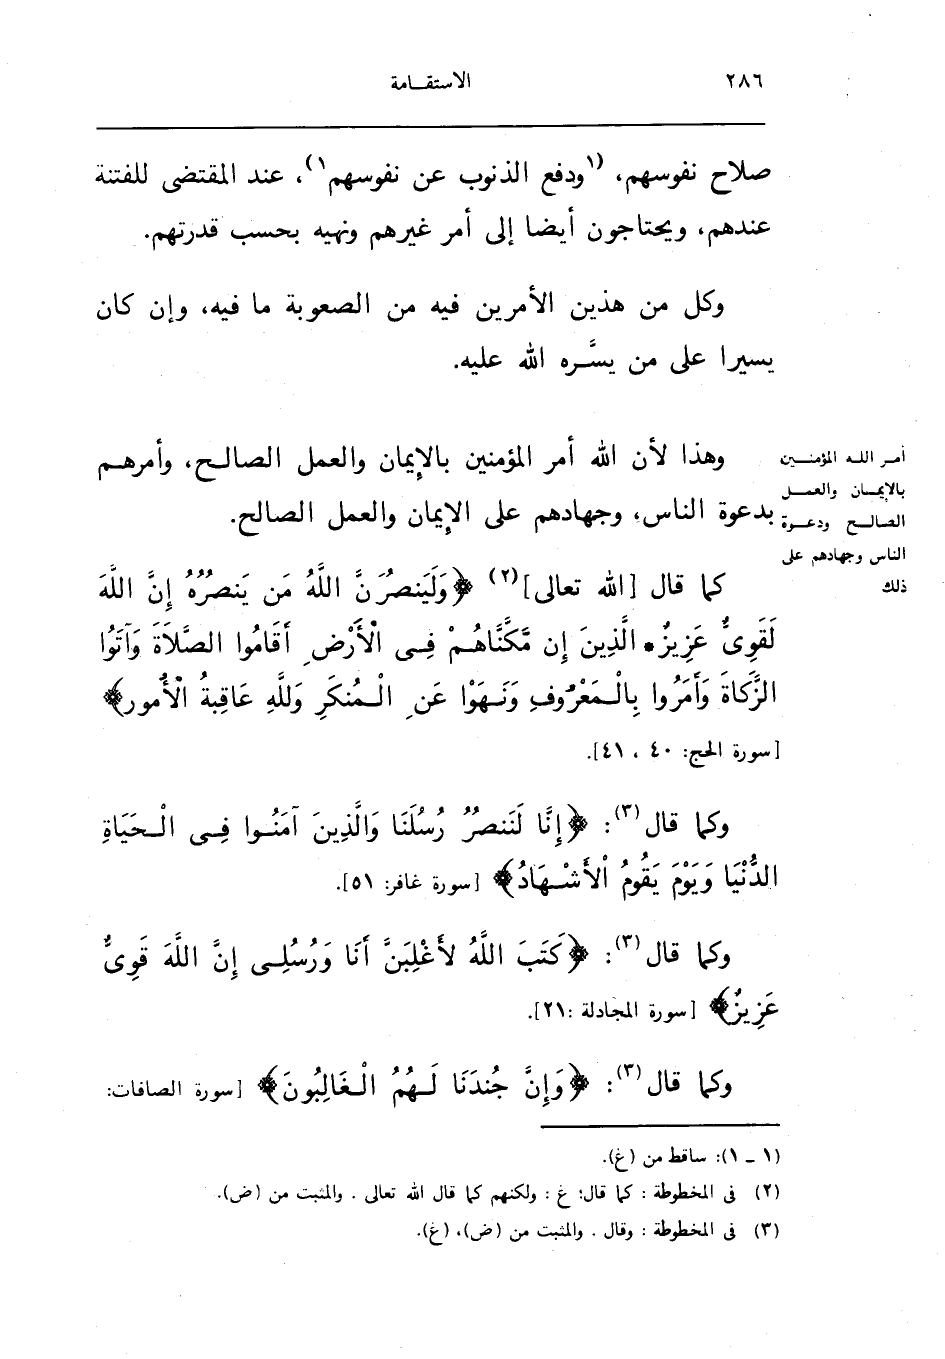 ٢٨٦
الاستقــامة
صلاح نفوسهم، (١ودفع الذنوب عن نفوسهم١)، عند المقتضى للفتنة
عندهم، ويحتاجون أيضا إلى أمر غيرهم ونهيه بحسب قدرتهم.
وكل من هذين الأمرين فيه من الصعوبة ما فيه، وإن كان
يسيرا على من يسَّره الله عليه.
وهذا لأن الله أمر المؤمنين بالإيمان والعمل الصالح، وأمرهم
بدعوة الناس، وجهادهم على الإيمان والعمل الصالح.
أمر الله المؤمنين
بالإيمان والعمل
الصالح ودعوة
الناس وجهادهم على
ذلك
كما قال [الله تعالى](٢) ﴿وَلَيَنصُرَنَّ اللَّهُ مَن يَنصُرُهُ إِنَّ اللَّهَ
لَقَوِىٌّ عَزِيزٌ * الَّذِينَ إِن مَّكَّنَّاهُمْ فِى الْأَرْضِ أَقَامُوا الصَّلَاةَ وَآتَوُا
الزَّكَاةَ وَأَمَرُوا بِالْمَعْرُوفِ وَنَهَوْا عَنِ الْمُنكَرِ وَللَّهِ عَاقِبةُ الْأُمور﴾
[سورة الحج: ٤٠ ، ٤١].
وكما قال(٣): ﴿إِنَّا لَنَنصُرُ رُسُلَنَا وَالَّذِينَ آمَنُوا فِى الْحَيَاةِ
الدُّنْيَا وَيَوْمَ يَقُومُ الْأَشْهَادُ﴾ [سورة غافر: ٥١].
وكما قال(٣): ﴿كَتَبَ اللَّهُ لأَغْلِبَنَّ أَنَا وَرُسُلِى إِنَّ اللَّهَ قَوِىٌّ
عَزِيزٌ﴾ [سورة المجادلة :٢١].
وكما قال(٣): ﴿وَإِنَّ جُندَنَا لَهُمُ الْغَالِبُونَ﴾ [سورة الصافات:
(١ - ١): ساقط من (غ).
(٢) فى المخطوطة : كما قال؛ غ : ولكنهم كما قال الله تعالى . والمثبت من (ض).
(٣) فى المخطوطة : وقال . والمثبت من (ض)، (غ).